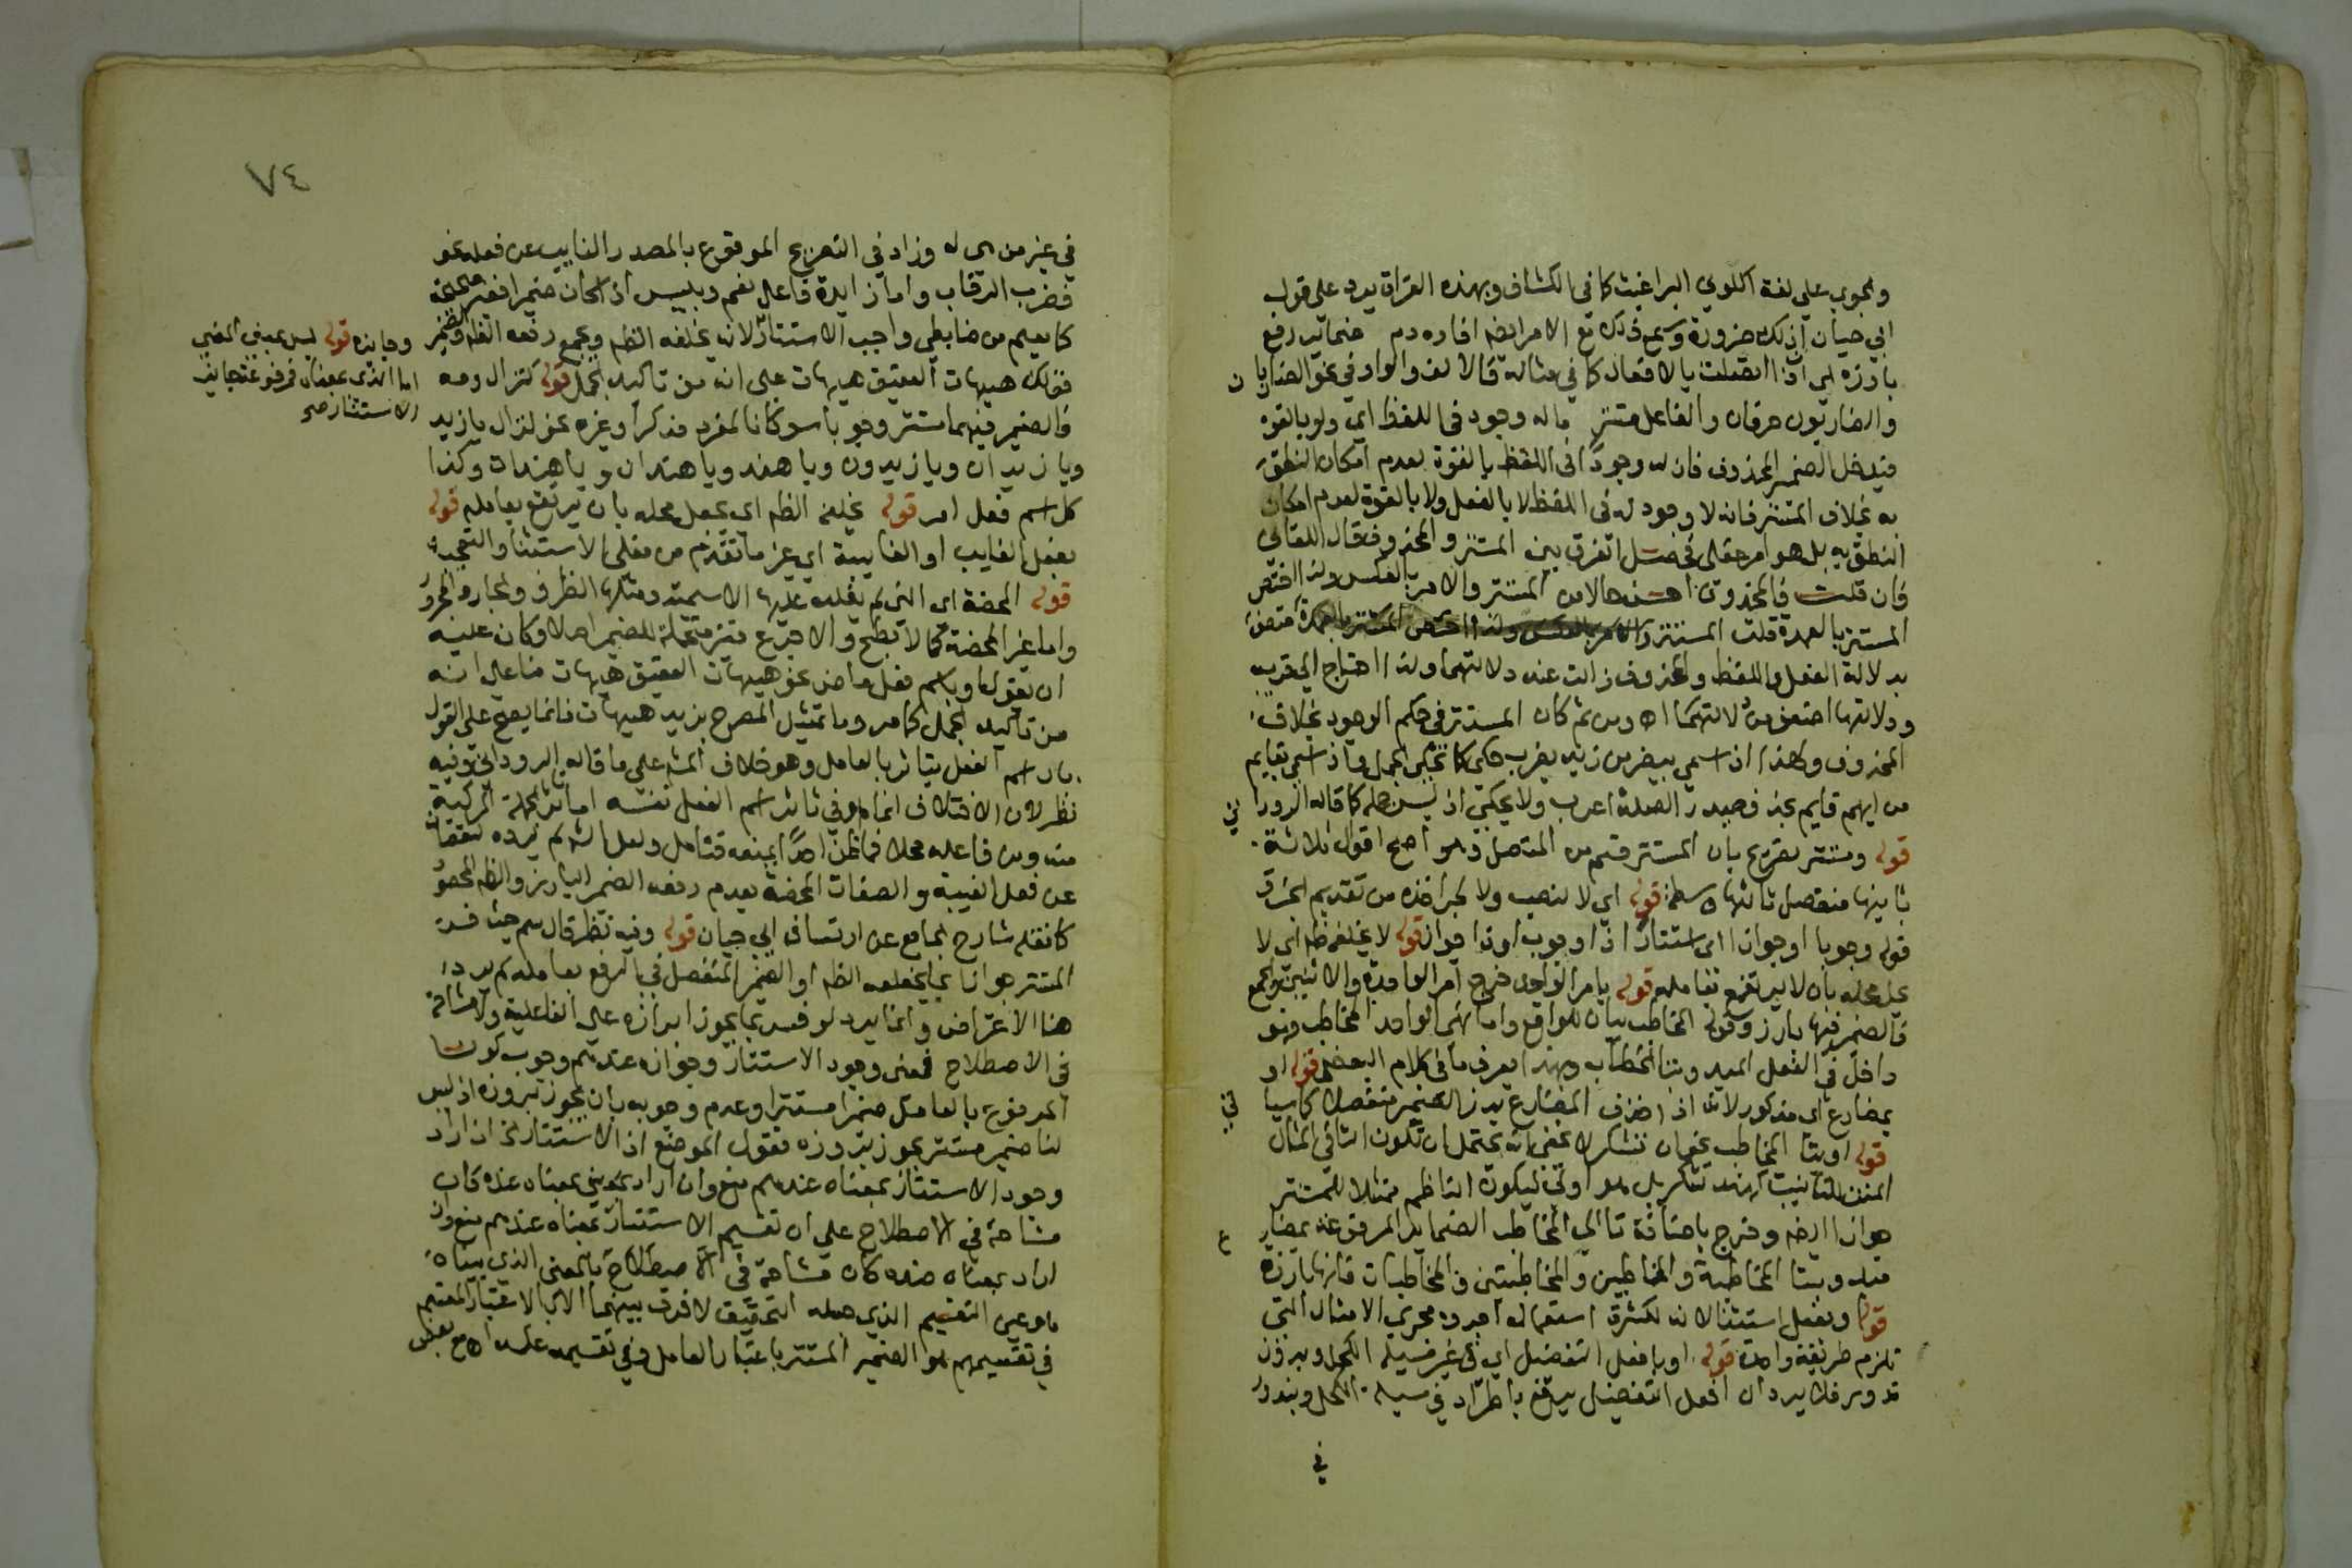 والجواب على لغة اكلوني البراغيث كما في الكشاف وبهذه القراة يرد على قول
ابي حيان ان ذلك ضرورة وسمع ذلك مع الامر ايضا افاده دم ضماير رفع
بارزة اي اذا اتصلت بالافعال كما في مثاله فالالف والواو في نحو الضاربان
والضاربون حرفان والفاعل مستتر ماله وجود في اللفظ اي ولو بالقوة
فيدخل الضمير المحذوف فان له وجودا في اللفظ بالقوة لعدم امكان النطق
به بخلاف المستتر فانه لا وجود له في اللفظ لا بالفعل ولا بالقوة لعدم امكان
النطق به بل هو امر عقلي فحصل الفرق بين المستتر والمحذوف قال اللقاني
فان قلت فالمحذوف احسن حالا من المستتر والامر بالعكس ولذا اختص
المستتر بالعمدة قلت المستتر
يدلالة الفعل واللفظ والمحذوف زالت عنه دلالتهما ولذا احتاج الى قرينة
ودلالتها اضعف من دلالتهما اه ومن ثم كان المستتر في حكم الموجود بخلاف
المحذوف ولهذا اذا سمي بيضرب من زيد يضرب حكي كما تحكى الجمل واذا سمي بقايم
من ايهم قايم بحذف صدر الصلة اعرب ولا يحكى اذ ليس جملة كما قاله الروداني
قوله ومستتر تصريح بان المستتر قسم من المتصل وهو اصح اقوال ثلاثة
ثانيها منفصل ثالثها واسطة قوله اي لا لنصب ولا لجر اخذه من تقديم الخ
قوله وجوبا او جوازا اي استتارا ذا وجوب او ذا جواز قوله لا يخلفه ظاهر اي لا
يحل محله بان لا يرتفع بعامله قوله بامر الواحد خرج امر الواحدة والاثنين والجمع
فالضمير فيها بارز وقوله المخاطب بيان للواقع واما نهي الواحد المخاطب فهو
داخل في الفعل المبدوء بتاء الخطاب وبهذا يعرف ما في كلام البعض قوله او
بمضارع اي مذكور لانه اذا حذف المضارع برز الضمير منفصلا كما سيأتي
قوله او بتا المخاطب نحو ان تشكر لا يخفى انه يحتمل ان تكون التا في المثال
المتن للتانيث كهند تشكر بل هو اولى ليكون الناظم ممثلا للمستتر
جوازا ايضا وخرج باضافة تا الى المخاطب الضماير المرفوعة بمضارع
مبدو بتا المخاطبة والمخاطبين والمخاطبتين والمخاطبات فانها بارزة
قوله وبفعل استثنا لانه لكثرة استعماله اجروه مجرى الامثال التي
تلزم طريقة واحدة قوله او بافعل التفضيل اي في غير مسيلة الكحل وبدون
ندور فلا يرد ان افعل التفضيل يرفع باطراد في مسيلة الكحل وبندور
في
٧٤
في غير مسيلة وزاد في التصريح المرفوع بالمصدر النايب عن فعله نحو
فضرب الرقاب واما زاده فاعل نعم وبئس اذا كان ضميرا فغير
كما يعلم من ضابطي واجب الاستتار لانه يخلفه الظاهر ويجمع رفعه الظاهر والضمير
فقولك هيهات العقيق هيهات على انه من تاكيد الجمل قوله كنزال ومه
فالضمير فيهما مستتر وجوبا سوا كانا لمفرد مذكر او غيره نحو نزال يا زيد
ويا زيدان ويا زيدون ويا هند ويا هندان ويا هندات وكذا
كل اسم فعل امر قوله يخلفه الظاهر اي يحل محله بان يرتفع بعامله قوله
بفعل الغايب او الغايبة اي غير ما تقدم من فعلي الاستثنا والتعجب
قوله المحضة اي التي لم تغلب عليها الاسمية ومثلها الظرف والجار والمجرور
واما غير المحضة كالابطح والاجرع فغير متحملة للضمير اصلا وكان عليه
ان يقول او باسم فعل ماض نحو هيهات العقيق هيهات بناء على انه
من تاكيد الجمل كما مر وما تمثيل المصرح بزيد هيهات فانما يصح على القول
بان اسم الفعل يتاثر بالعامل وهو خلاف المشهور على ما قاله الروداني وفيه
نظر لان الاختلاف انما هو في تاثر اسم الفعل نفسه اما تاثر الجملة المركبة
منه ومن فاعله محلا فما اظن احدا يمنعه فتامل ولعل الشارح لم يزده لنقصانه
عن فعل الغيبة والصفات المحضة بعدم رفعه الضمير البارز والظاهر المحصور
كما نقله شارح الجامع عن ارتشاف ابي حيان قوله وفيه نظر قال سم حيث فسر
المستتر جوازا بما يخلفه الظاهر او الضمير المنفصل في الرفع بعامله لم يرد
هذا الاعتراض وانما يرد لو فسر بما يجوز ابرازه على الفاعلية ولا مشاحة
في الاصطلاح فمعنى وجوب الاستتار وجوازه عندهم وجوب كون
المرفوع بالعامل ضميرا مستترا وعدم وجوبه بان يجوز بروزه اذ ليس
لنا ضمير مستتر يجوز بروزه فقول الموضح اذ الاستتار الخ ان اراد
وجوب الاستتار بمعناه عندهم منع وان اراد بمعناه عنده كان
مشاحة في الاصطلاح على ان تقسيم الاستتار بمعناه عندهم منع وان
اراد بمعناه عنده كان مشاحة في الاصطلاح بالمعنى الذي بيناه
هو عين التقسيم الذي جعله التحقيق لا فرق بينهما الا بالاعتبار المقسم
في تقسيمهم هو الضمير المستتر باعتبار العامل وفي تقسيمه عكسه اه مع بعض
وجايزه قوله ليس بمعنى المضي
اما الذي بمعناه فمرفوعه جايز
الاستتار صح